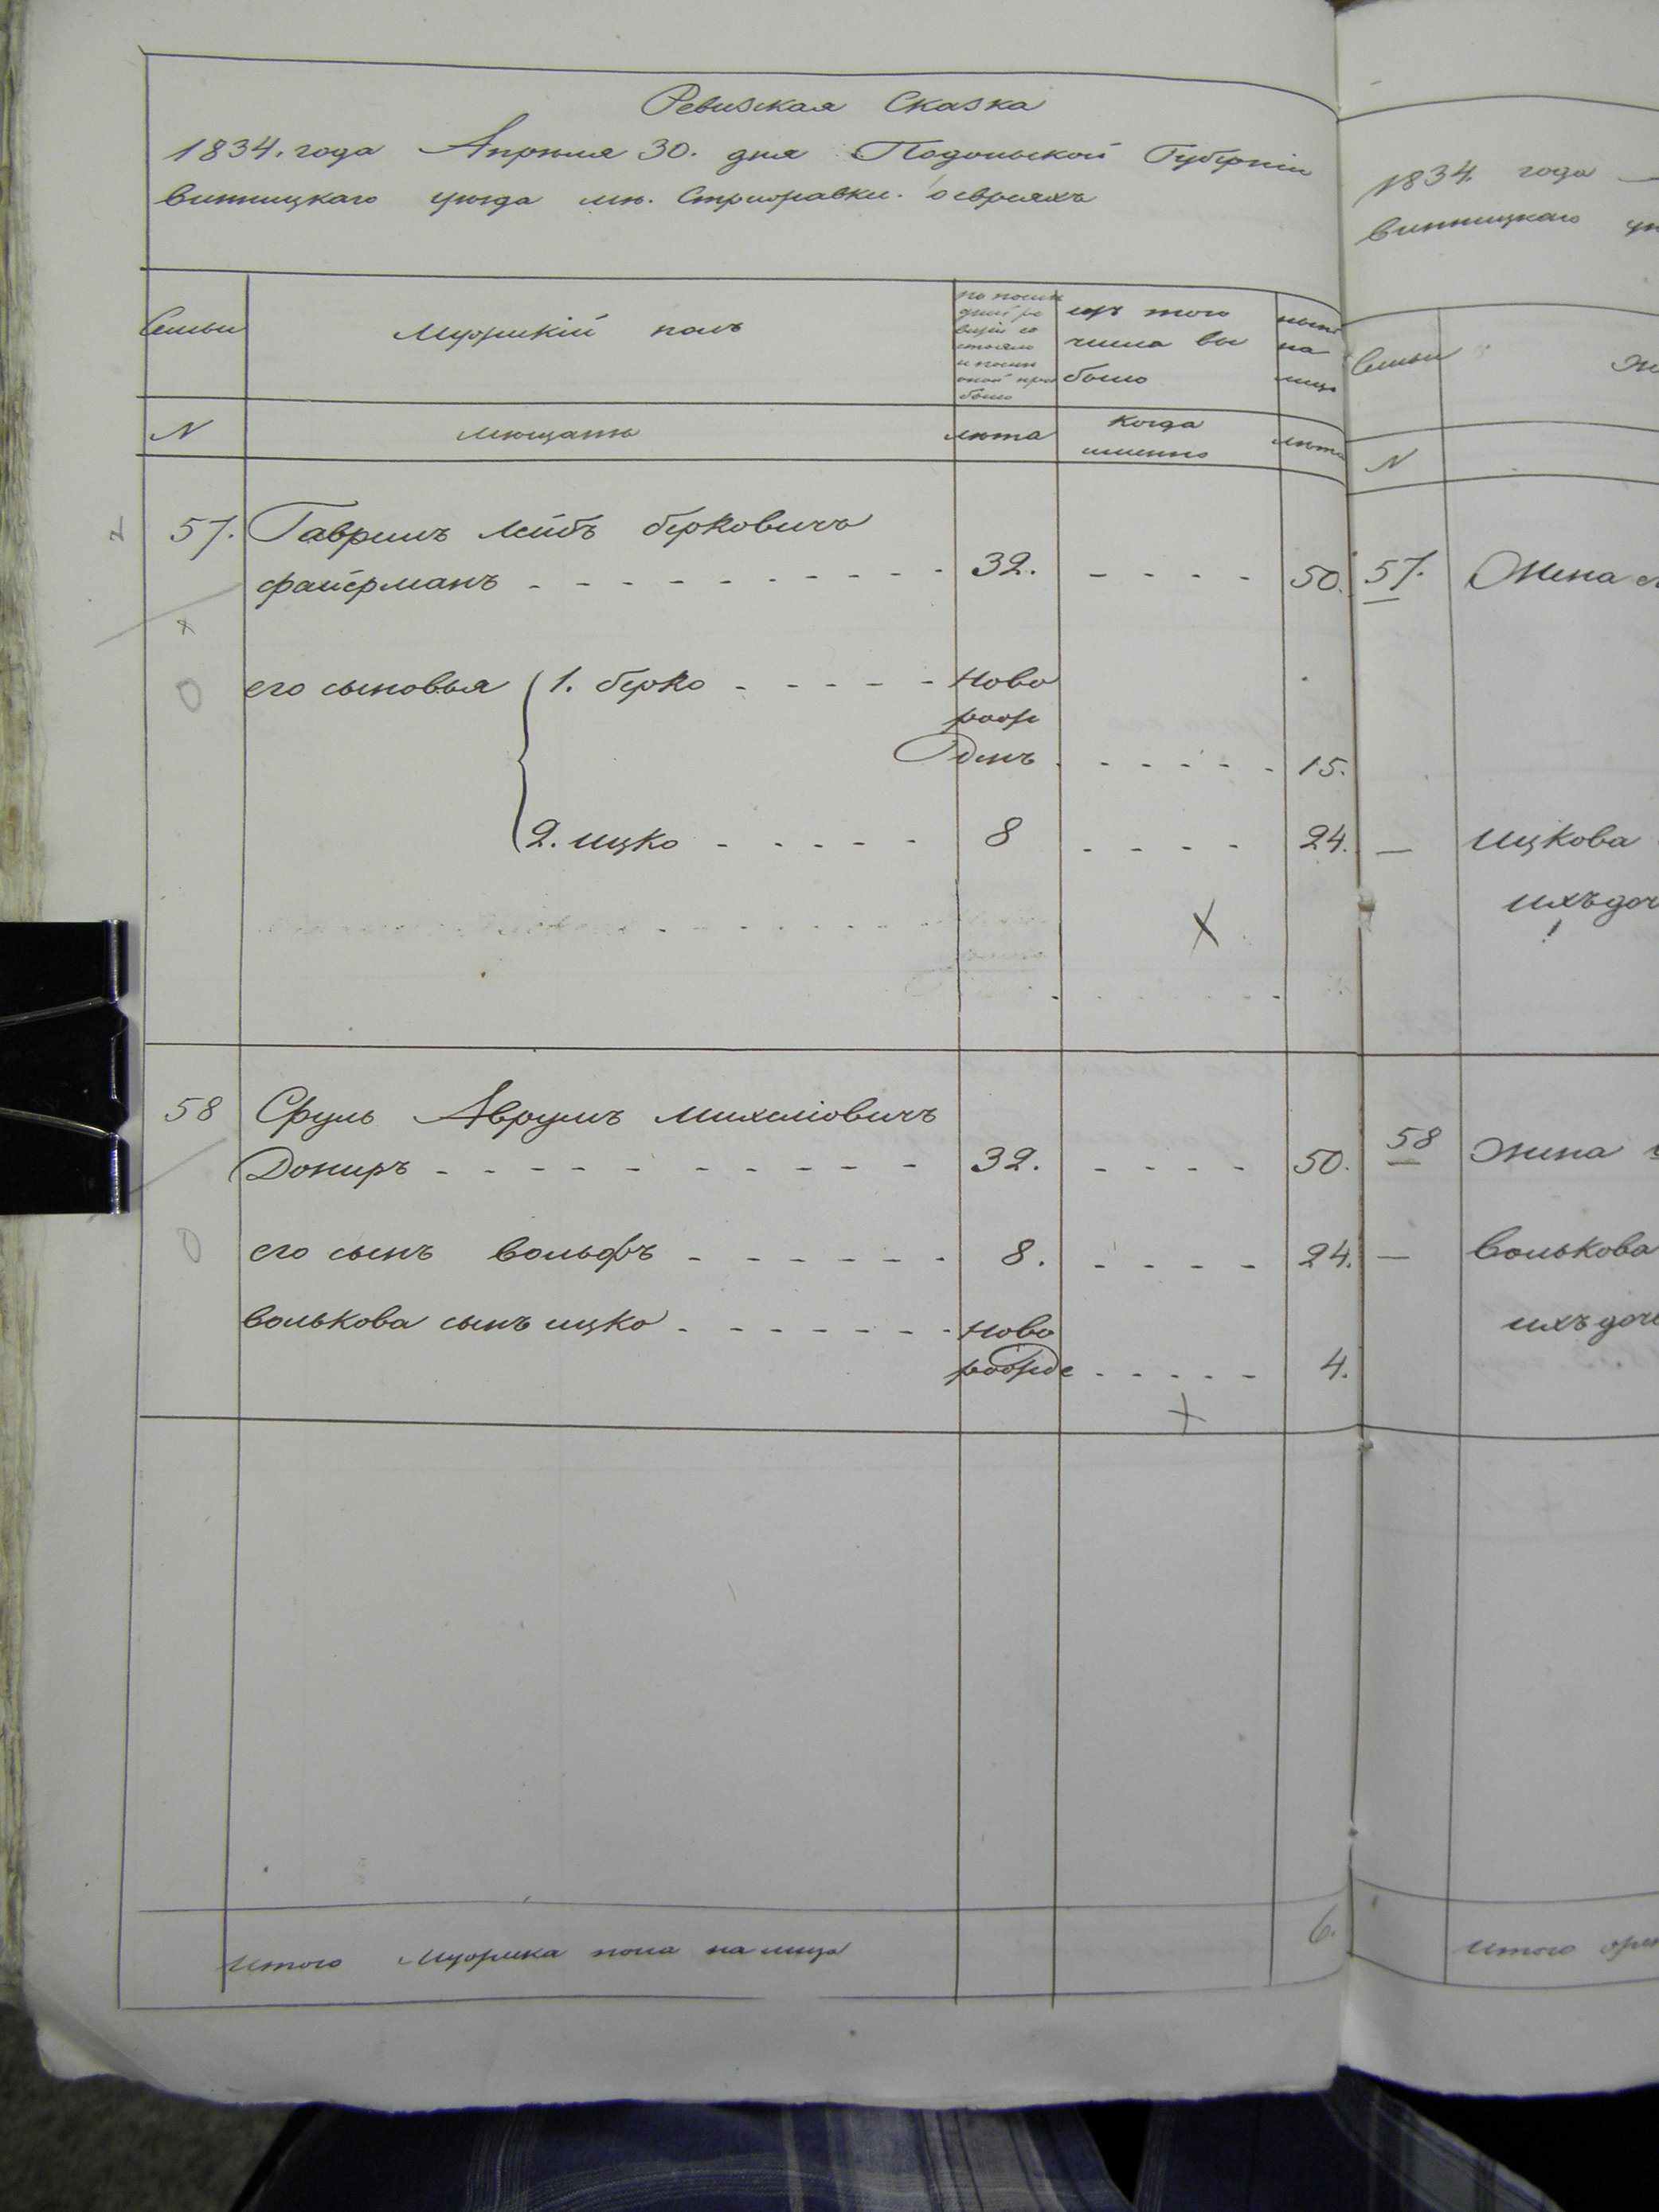 Ревизская Сказка
1834. года Апреля 30. дня Подольской Губерніи
Винницкаго уезда м. Стрижавки. о евреяхъ
Семьи
Мужескій полъ
по послѣ
дней ре
визіи со
стояло
и послѣ
оной при
было
изъ того
числа вы
было
нынѣ
на
лицо
N
мещане
лѣта
когда
именно
лѣта
57. Гаврилъ Лейбъ берковичъ
файерманъ - - - - - - - - - - 32. - - - - 50.
его сыновья 1. берко - - - - - Ново
рож
денъ - - - - - - 15.
2. ицко - - - - - 8 - - - - 24.
X
58 Сруль Аврумъ михелiовичъ
Дониръ - - - - - - - - - - 32. - - - - 50.
его сынъ вольфъ - - - - - - 8. - - - - 24.
волькова сынъ ицко - - - - - - - Ново
рожде - - - - - 4.
+
итого Мужеска пола на лицо 6.
1834 года
Винницкаго
Семьи
N
57. Жена
— Ицкова
ихъ доч
58 жена
— волькова
ихъ доч
итого